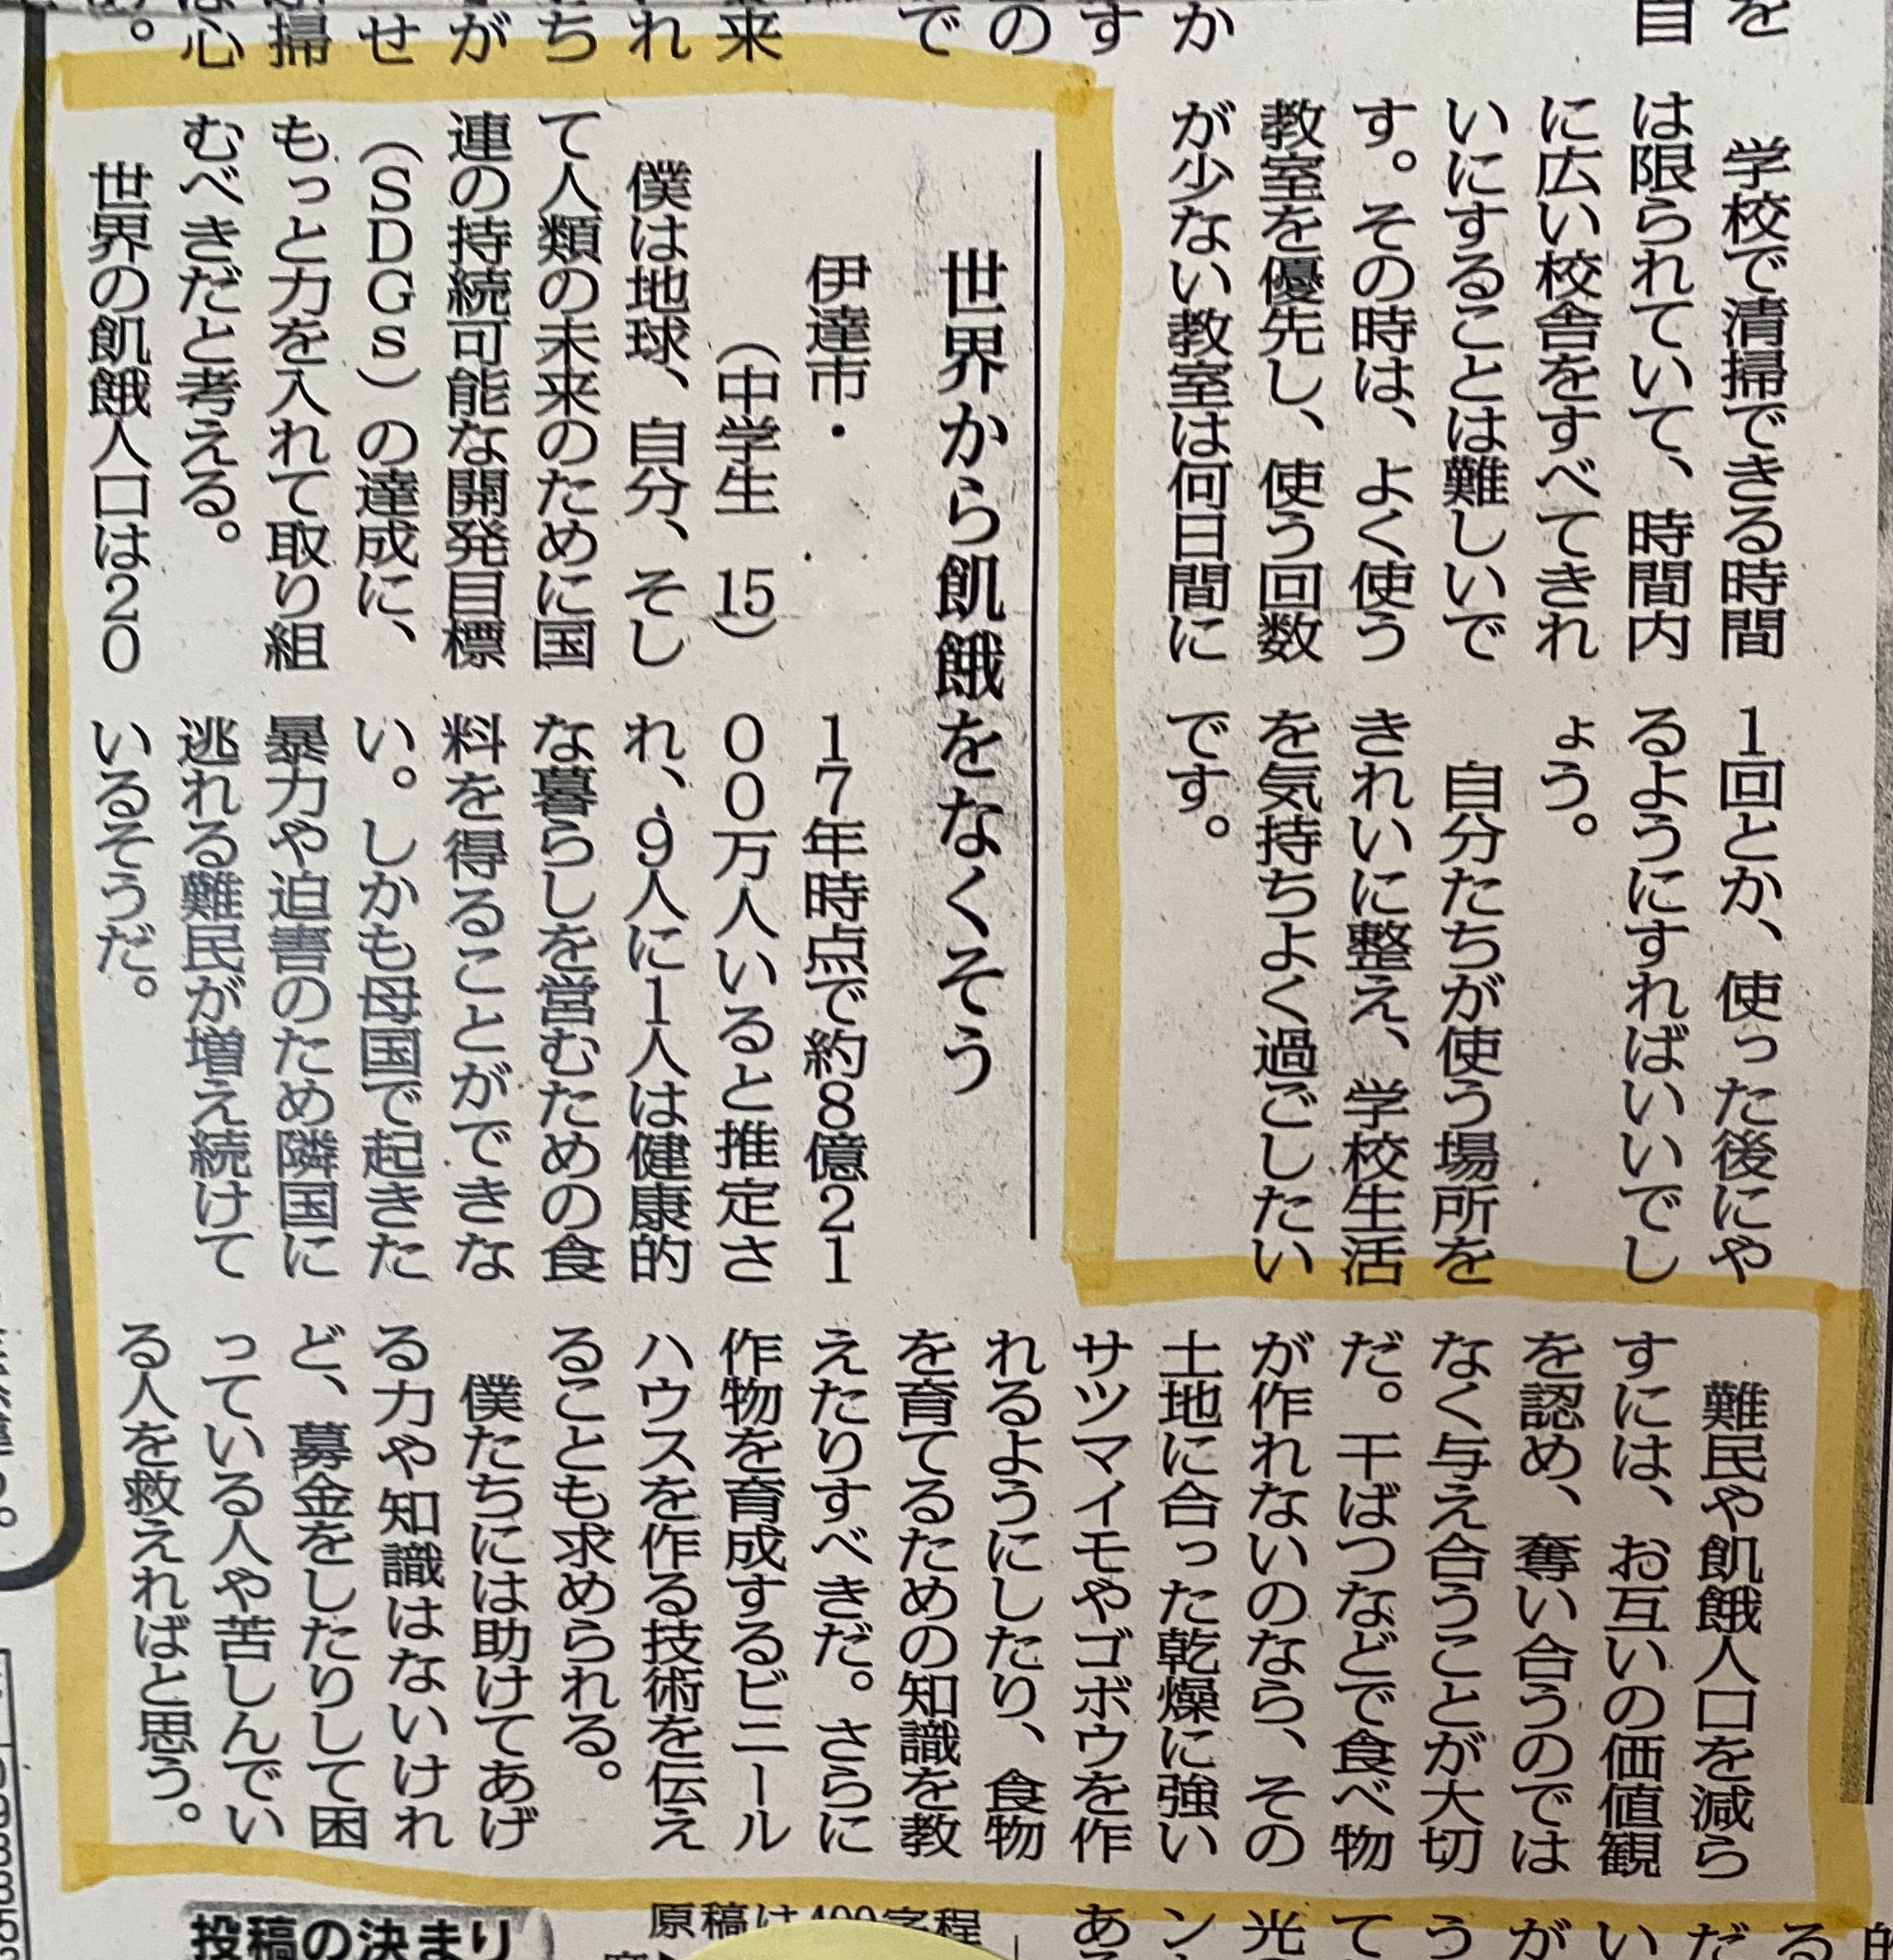 を
自
か
す
の
で
来
れ
ち
が
せ
掃
は心
学校で清掃できる時間
は限られていて、時間内
に広い校舎をすべてきれ
いにすることは難しいで
す。その時は、よく使う
教室を優先し、使う回数
が少ない教室は何日間に
1回とか、使った後にや
るようにすればいいでし
ょう。
自分たちが使う場所を
きれいに整え、学校生活
を気持ちよく過ごしたい
です。
世界から飢餓をなくそう
伊達市・
(中学生 15)
僕は地球、自分、そし
て人類の未来のために国
連の持続可能な開発目標
(SDGs)の達成に、
もっと力を入れて取り組
むべきだと考える。
世界の飢餓人口は20
17年時点で約8億21
00万人いると推定さ
れ、9人に1人は健康的
な暮らしを営むための食
料を得ることができな
い。しかも母国で起きた
暴力や迫害のため隣国に
逃れる難民が増え続けて
いるそうだ。
難民や飢餓人口を減ら
すには、お互いの価値観
を認め、奪い合うのでは
なく与え合うことが大切
だ。干ばつなどで食べ物
が作れないのなら、その
土地に合った乾燥に強い
サツマイモやゴボウを作
れるようにしたり、食物
を育てるための知識を教
えたりすべきだ。さらに
作物を育成するビニール
ハウスを作る技術を伝え
ることも求められる。
僕たちには助けてあげ
る力や知識はないけれ
ど、募金をしたりして困
っている人や苦しんでい
る人を救えればと思う。
投稿の決まり
原稿は400字程